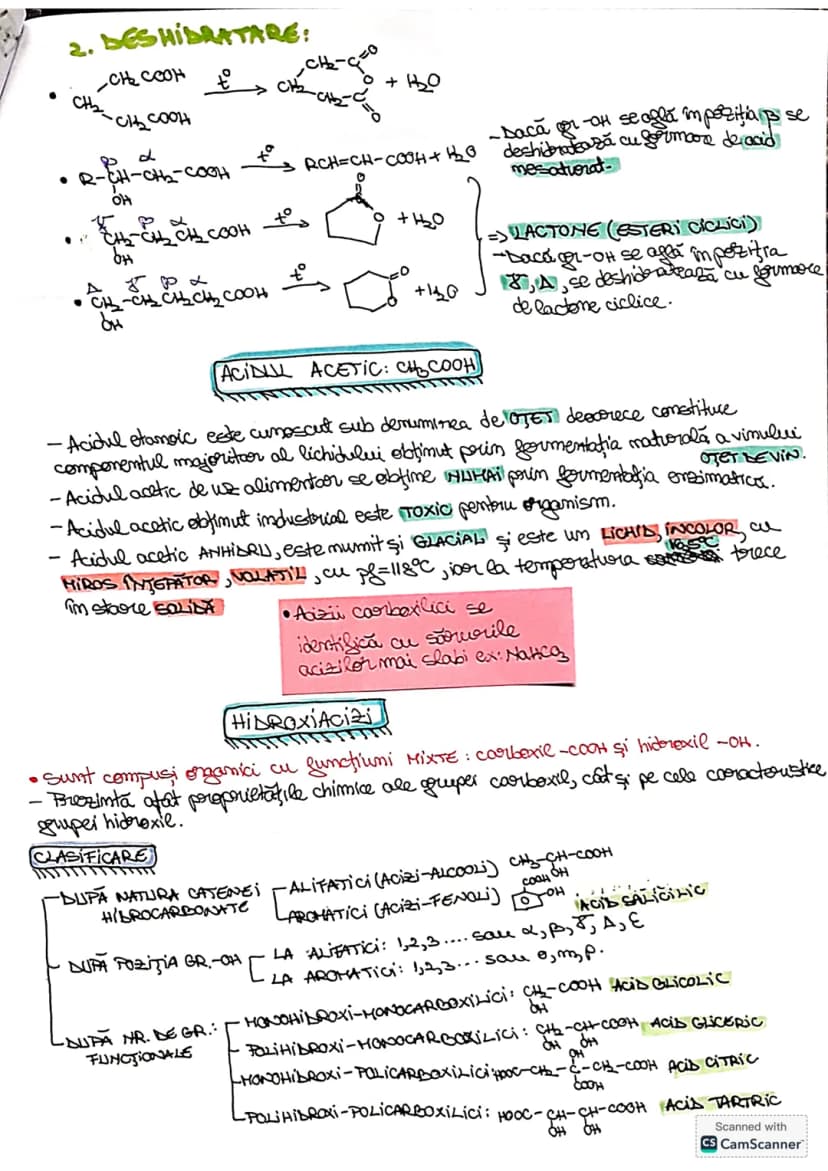 2. DESHIDRATARE:
• CH₂ CH₂COOH CH₂COOH t° → CH₂ CH₂-C=O O CH₂-C=O + H₂O
• R-CH-CH₂-COOH t° → RCH=CH-COOH + H₂O
β α
OH
- Dacă gr -OH se află în poziția β se
deshidratează cu formare de acid
nesaturat.
• CH₂-CH₂CH₂COOH t° → O O + H₂O
γ β α
OH
• CH₂-CH₂CH₂CH₂COOH t° → O O + H₂O
Δ γ β α
OH
=> LACTONE (ESTERI CICLICI)
- Dacă gr-OH se află în poziția
γ, Δ, se deshidratează cu formare
de lactone ciclice.
ACIDUL ACETIC: CH₃COOH
- Acidul etanoic este cunoscut sub denumirea de OȚET deoarece constituie
componentul majoritar al lichidului obținut prin fermentația naturală a vinului
OȚET DE VIN.
- Acidul acetic de uz alimentar se obține NUMAI prin fermentația enzimatică.
- Acidul acetic obținut industrial este TOXIC pentru organism.
- Acidul acetic ANHIDRU, este numit și GLACIAL și este un LICHID, INCOLOR, cu
MIROS ÎNȚEPĂTOR, VOLATIL, cu pf=118°C, iar la temperatura trece
în stare SOLIDĂ
• Acizii carboxilici se
identifică cu sărurile
acizilor mai slabi ex: NaHCO₃
HIDROXIACIZI
• Sunt compuși organici cu funcțiuni MIXTE: carboxil -COOH și hidroxil -OH.
- Prezintă atât proprietățile chimice ale grupei carboxil, cât și pe cele caracteristice
grupei hidroxil.
CLASIFICARE
- DUPĂ NATURA CATENEI HIDROCARBONATE
- ALIFATICI (ACIZI-ALCOOLI) CH₃-CH-COOH
OH
- AROMATICI (ACIZI-FENOLI) COOH OH ACID SALICILIC
- DUPĂ POZIȚIA GR.-OH
- LA ALIFATICI: 1,2,3.... sau α, β, γ, Δ, ε
- LA AROMATICI: 1,2,3... sau o, m, p.
- DUPĂ NR. DE GR.: FUNCȚIONALE
- MONOHIDROXI-MONOCARBOXILICI: CH₂-COOH ACID GLICOLIC
OH
- POLIHIDROXI-MONOCARBOXILICI: CH₂-CH-COOH ACID GLICERIC
OH OH
- MONOHIDROXI-POLICARBOXILICI: HOOC-CH₂-C-CH₂-COOH ACID CITRIC
OH
COOH
- POLIHIDROXI-POLICARBOXILICI: HOOC-CH-CH-COOH ACID TARTRIC
OH OH
Scanned with
CS CamScanner